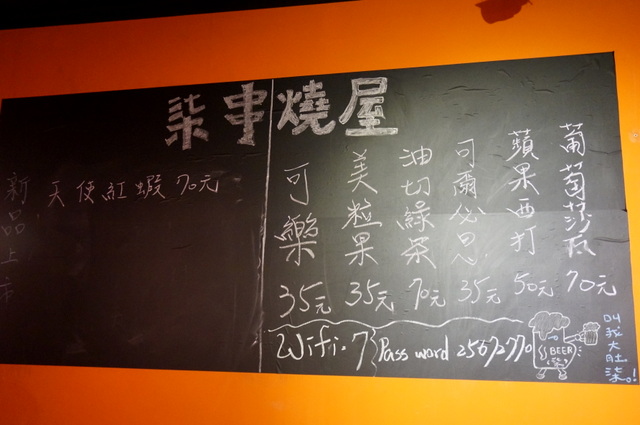 柒串燒屋
新品上市
天使紅蝦 70元
可樂 35元
美粒果 35元
油切綠茶 70元
可爾必思 35元
蘋果西打 50元
葡萄莎瓦 70元
Wifi-7 Pass word 25612770
BEER
叫我大肚柒。!